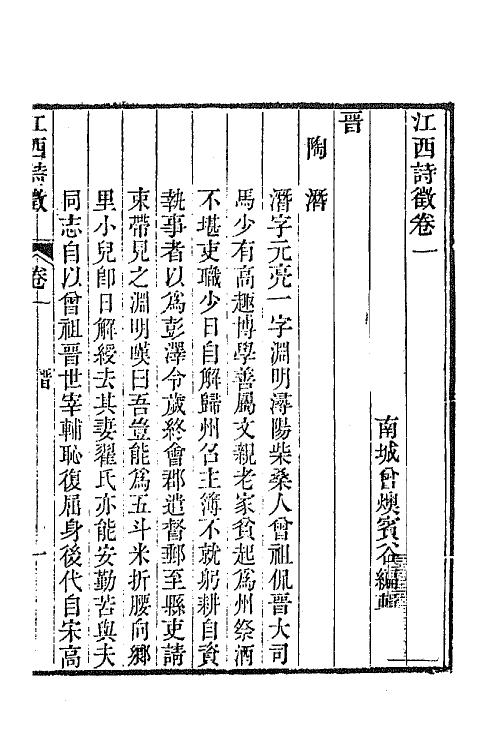 江西詩徵卷一
南城曾燠賓谷編輯
晋
陶潛
潛字元亮一字淵明潯陽柴桑人曾祖侃晉大司
馬少有高趣博學善屬文親老家貧起爲州祭酒
不堪吏職少日自解歸州召主簿不就躬耕自資
執事者以爲彭澤令歲終會郡遣督郵至縣吏請
束帶見之淵明嘆曰吾豈能爲五斗米折腰向鄉
里小兒卽日解綬去其妻翟氏亦能安勤苦與夫
同志自以曾祖晉世宰輔恥復屈身後代自宋高
江西詩徵 卷一 晉 一